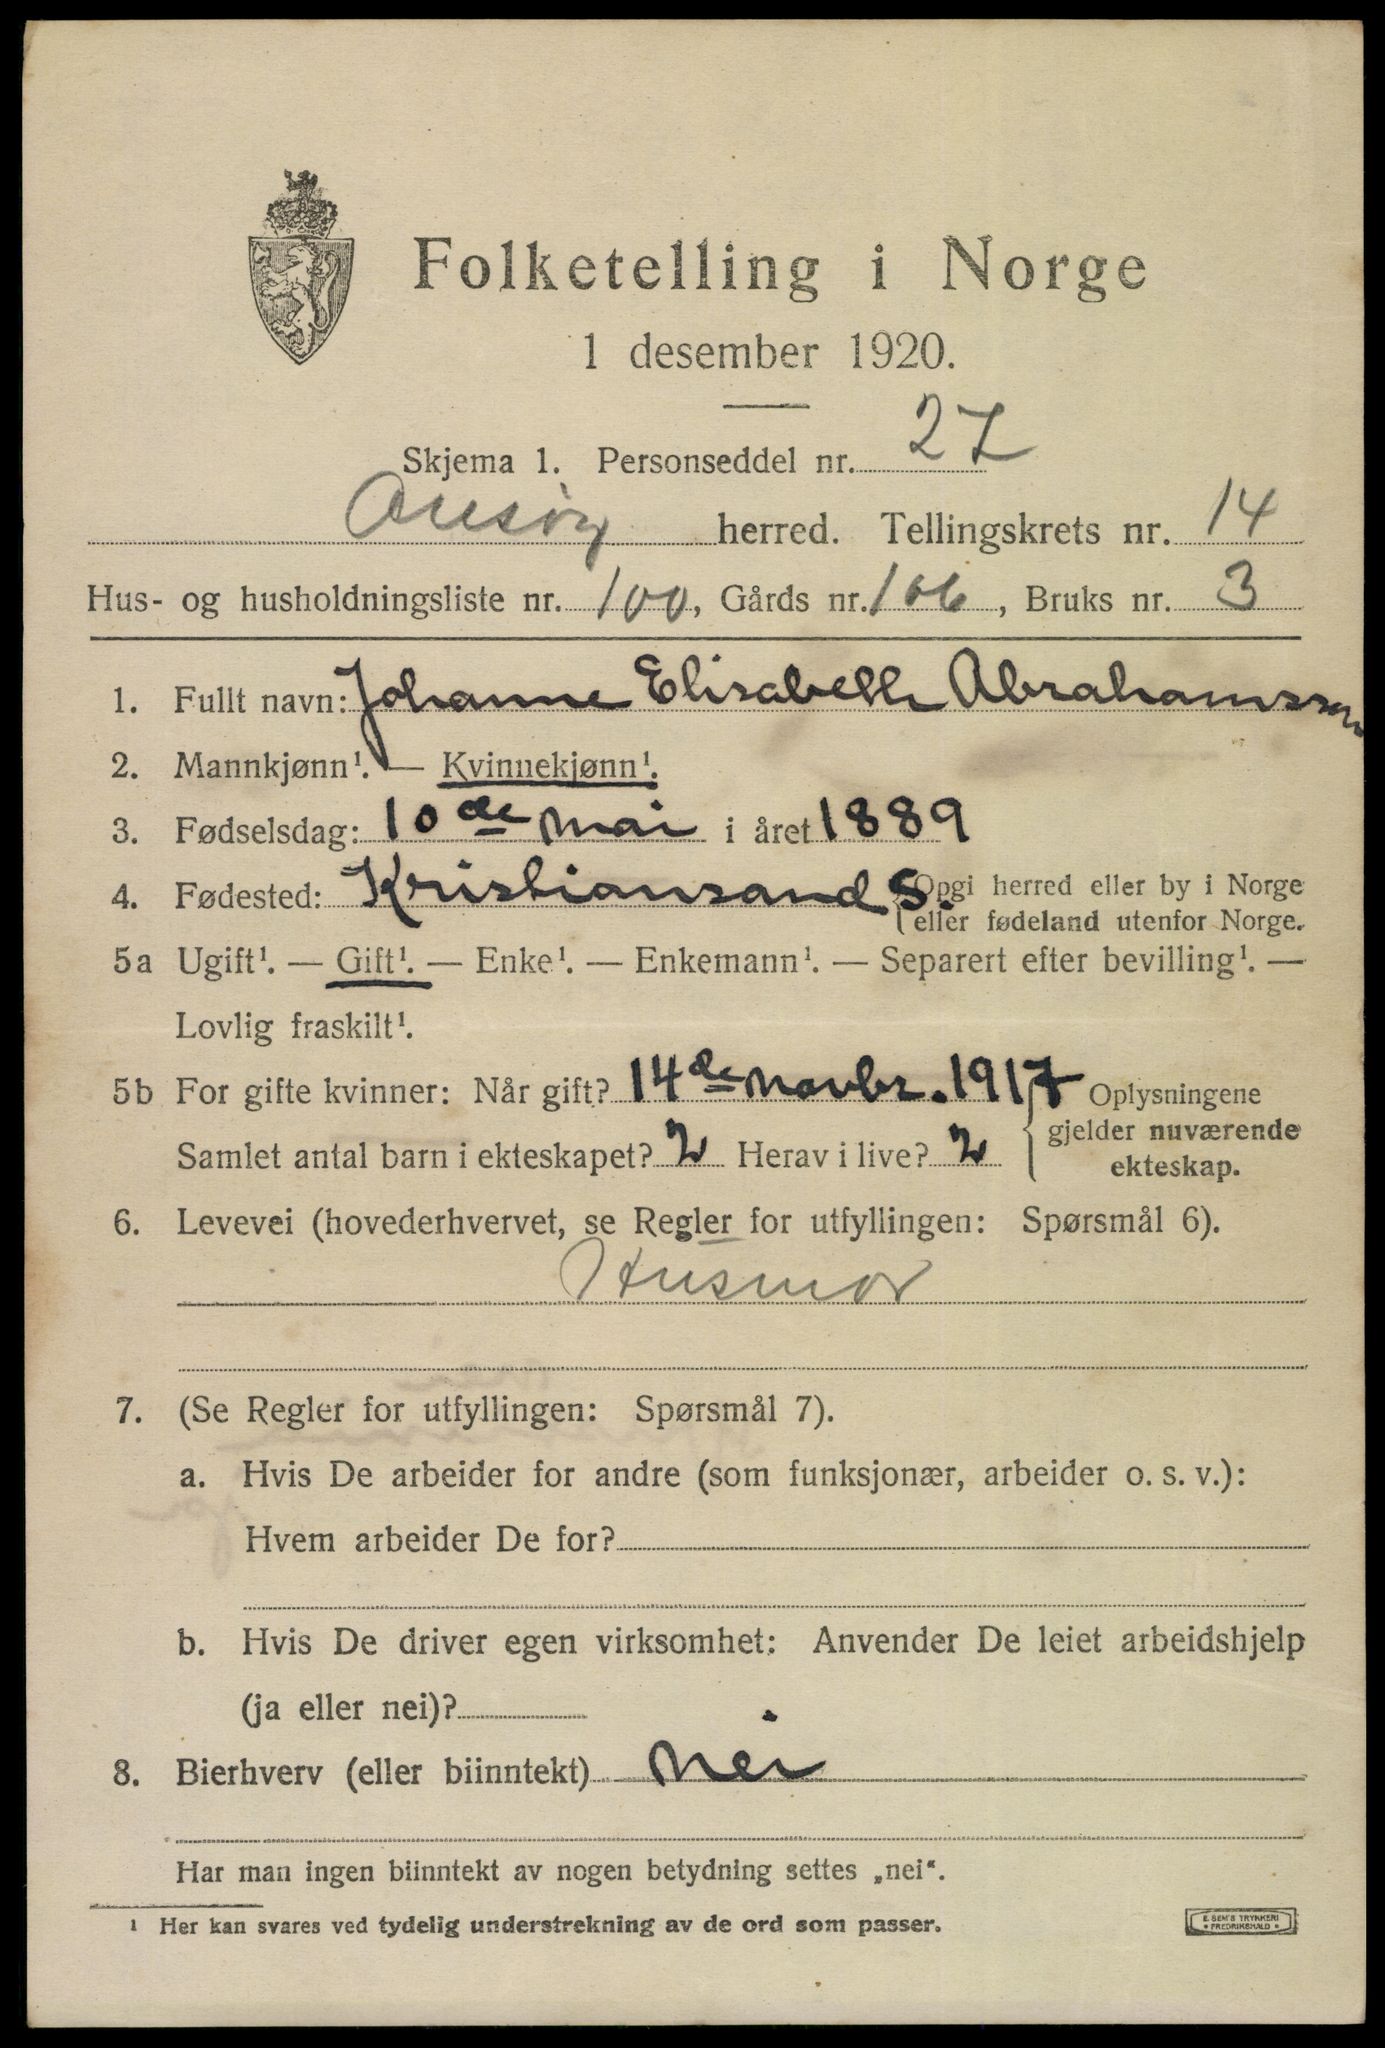 Folketelling i Norge
1 desember 1920.
Skjema 1. Personseddel nr. 27
herred. Tellingskrets nr. 14
Hus- og husholdningsliste nr. 100, Gårds nr. 106, Bruks nr. 3
1. Fullt navn: Johanne Elisabeth Abrahamssen
2. Mannkjønn¹. — Kvinnekjønn¹.
3. Fødselsdag: 10de mai i året 1889
4. Fødested: Kristiansand S. Opgi herred eller by i Norge
eller fødeland utenfor Norge.
5a Ugift¹. — Gift¹. — Enke¹. — Enkemann¹. — Separert efter bevilling¹. —
Lovlig fraskilt¹.
5b For gifte kvinner: Når gift? 14de novbr. 1917 Oplysningene
gjelder nuværende
Samlet antal barn i ekteskapet? 2 Herav i live? 2 ekteskap.
6. Levevei (hovederhvervet, se Regler for utfyllingen: Spørsmål 6).
Husmor
7. (Se Regler for utfyllingen: Spørsmål 7).
a. Hvis De arbeider for andre (som funksjonær, arbeider o. s. v.):
Hvem arbeider De for?
b. Hvis De driver egen virksomhet: Anvender De leiet arbeidshjelp
(ja eller nei)?
8. Bierhverv (eller biinntekt) nei
Har man ingen biinntekt av nogen betydning settes „nei“.
¹ Her kan svares ved tydelig understrekning av de ord som passer.
E. SEM'S TRYKKERI
FREDRIKSHALD